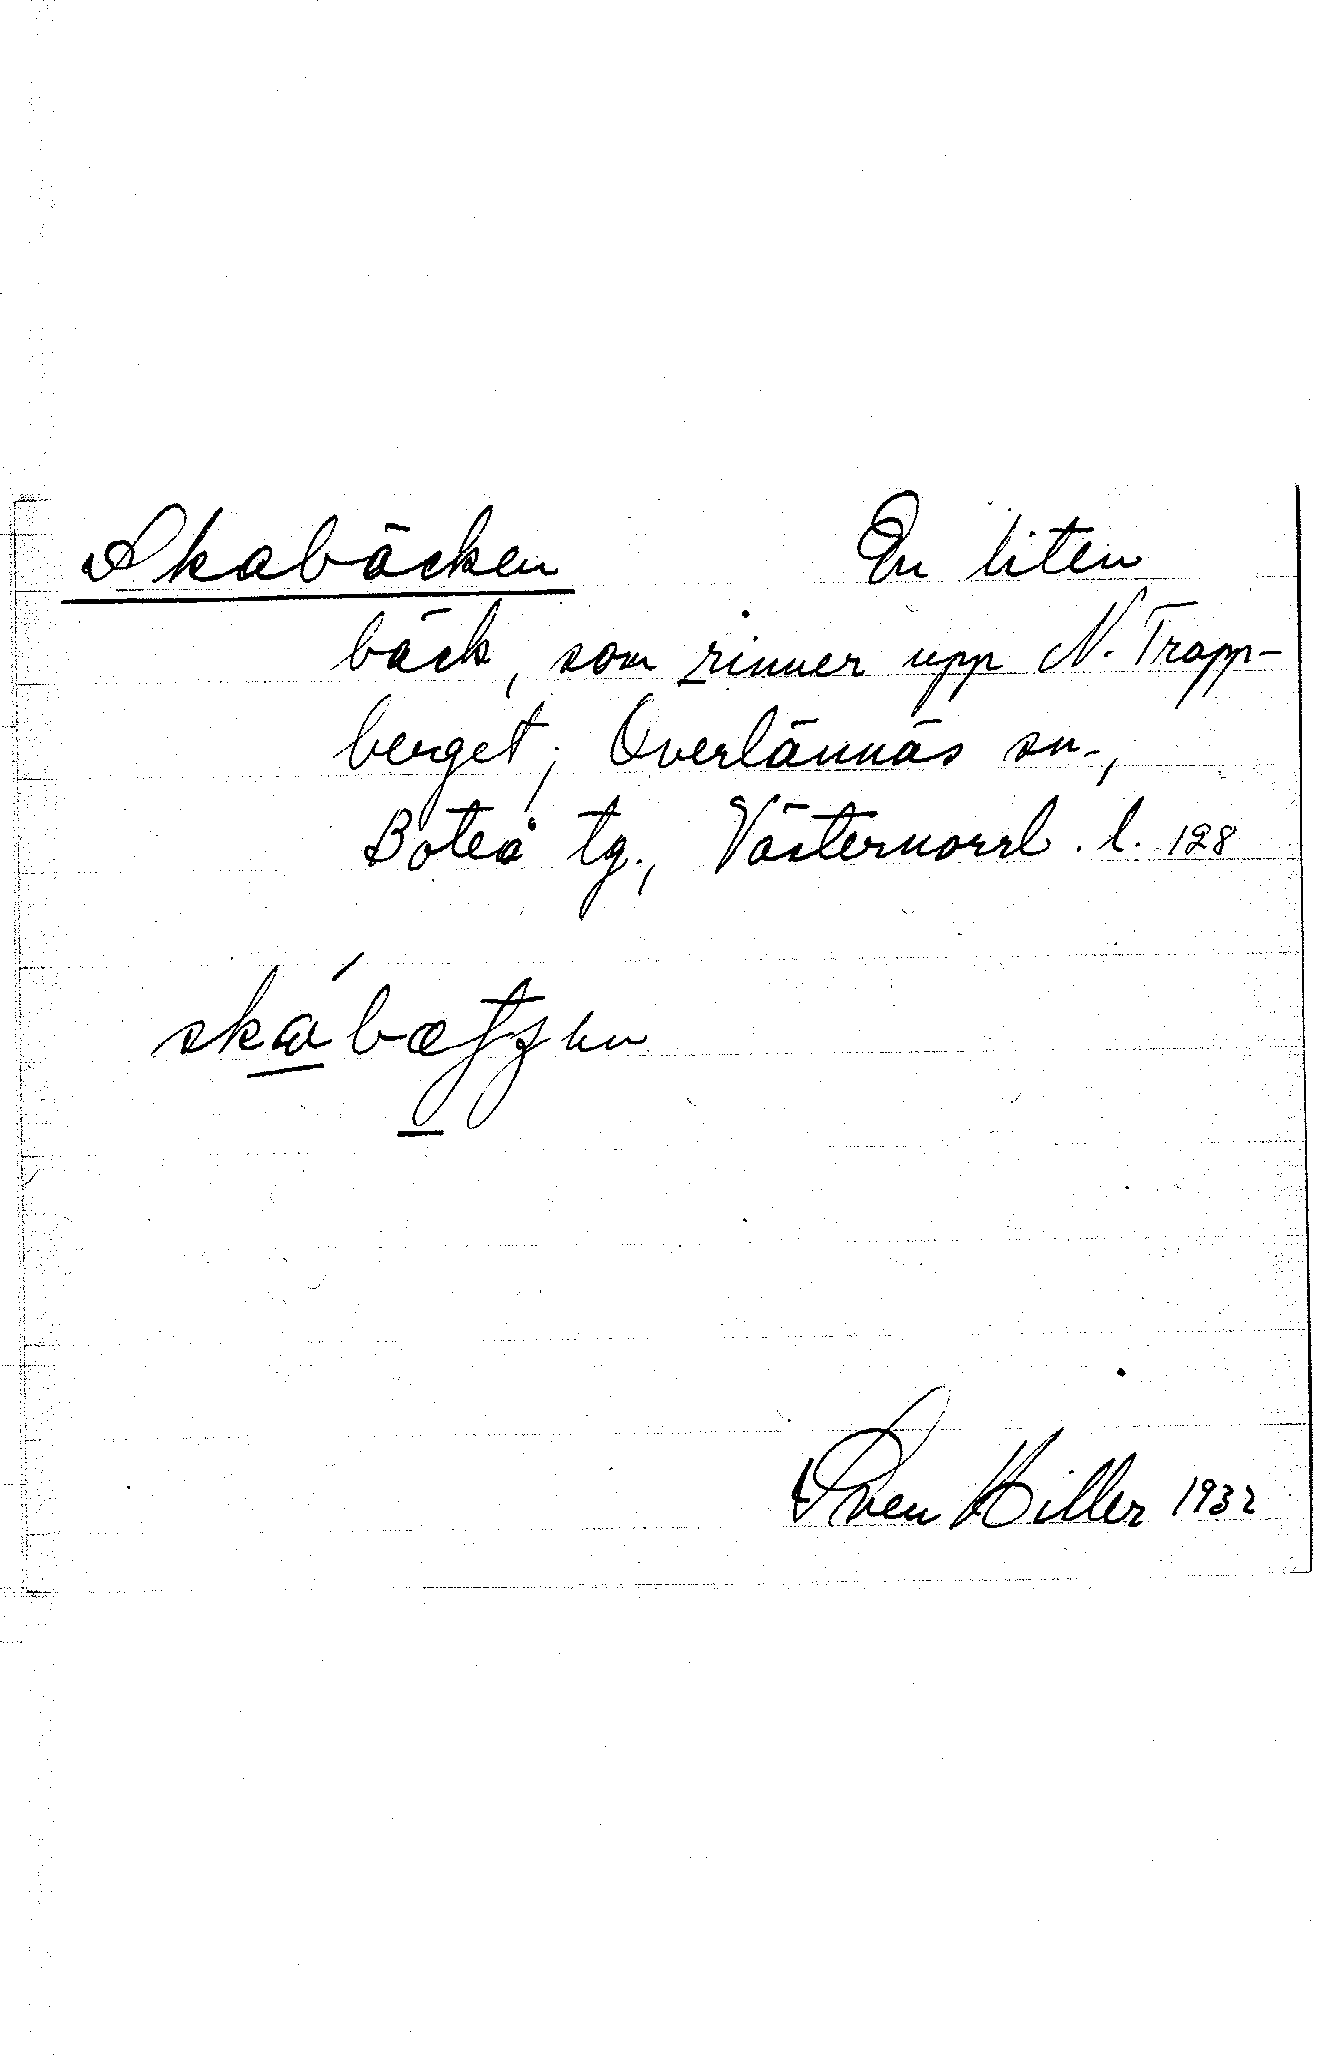 Skabäcken En liten
bäck, som rinner upp N. Trapp-
berget; Överlännäs sn.,
Boteå tg., Västernorrl. l. 128
Sven Hiller 1932